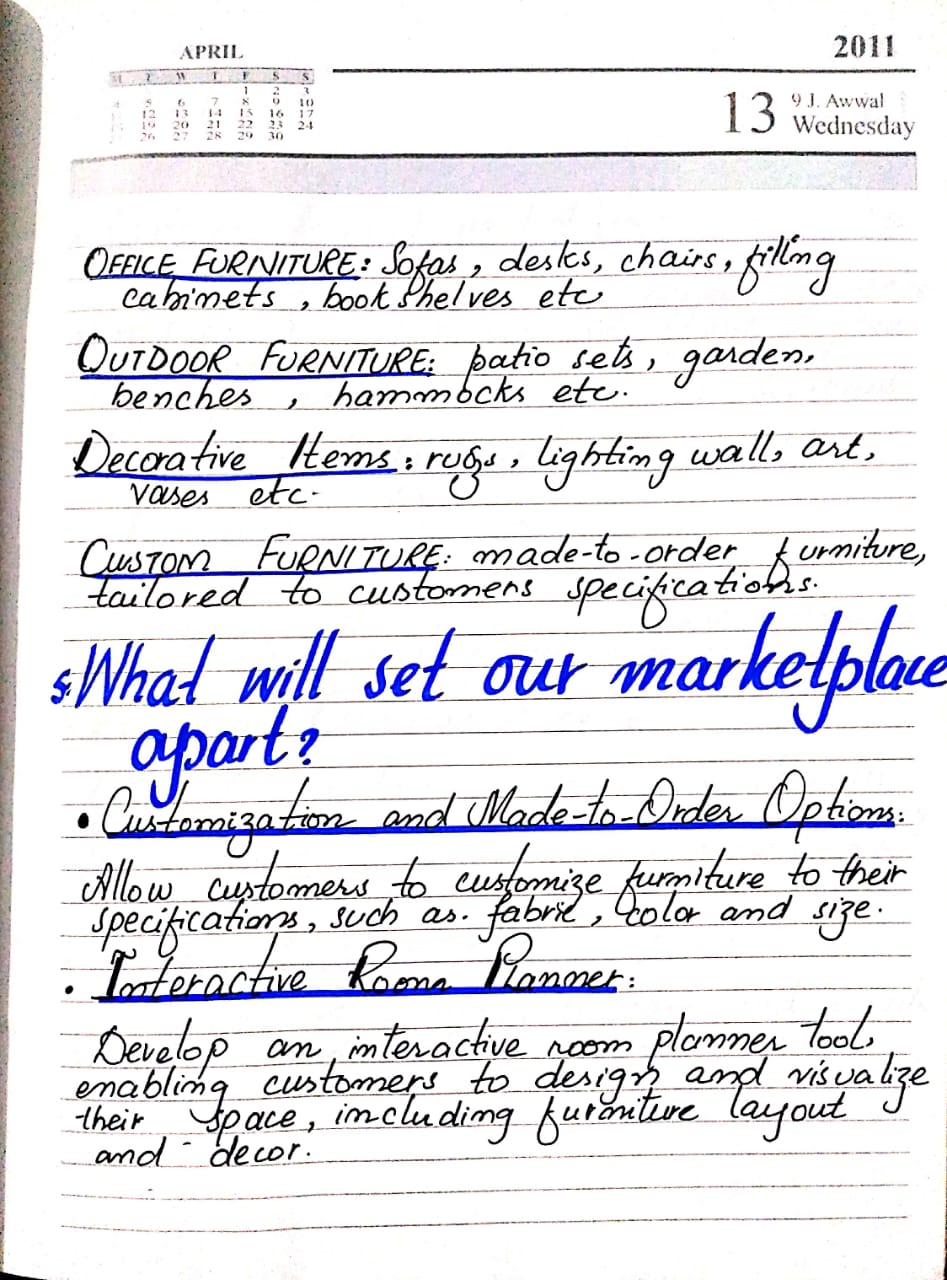 APRIL
2011
M T W T F S S
1 2 3
4 5 6 7 8 9 10
12 13 14 15 16 17
19 20 21 22 23 24
26 27 28 29 30
13 9 J. Awwal
Wednesday
OFFICE FURNITURE: Sofas, desks, chairs, filling
cabinets, book shelves etc
OUTDOOR FURNITURE: patio sets, garden,
benches, hammocks etc.
Decorative Items: rugs, lighting wall, art,
vases etc.
CUSTOM FURNITURE: made-to-order furniture,
tailored to customers specifications.
5:What will set our marketplace
apart?
• Customization and Made-to-Order Options:
Allow customers to customize furniture to their
specifications, such as. fabric, color and size.
• Interactive Room Planner:
Develop an interactive room planner tool,
enabling customers to design and visualize
their space, including furniture layout
and decor.